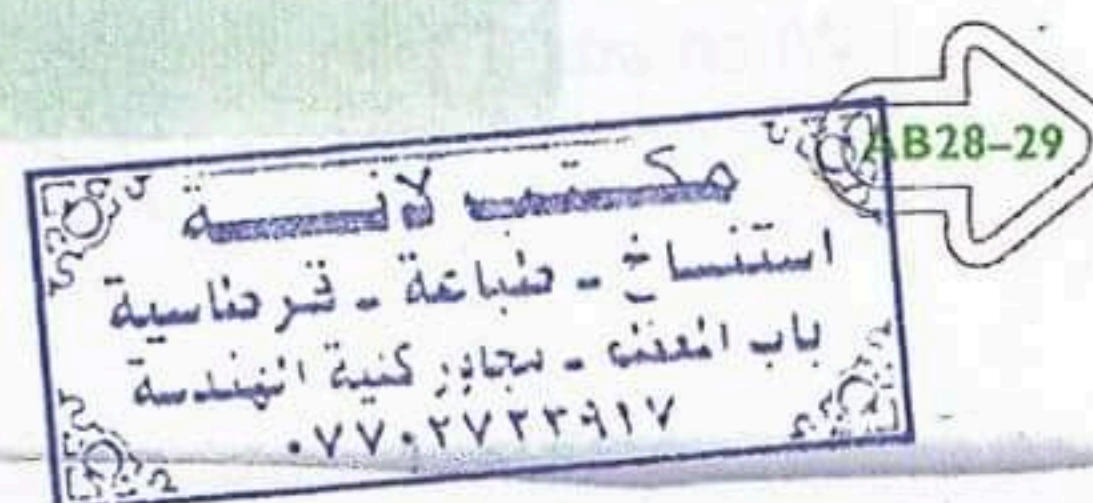 AB28–29
مكتب لانــة
استنساخ - طباعة - قرطاسية
باب المعظم - مجاور كلية الهندسة
٠٧٧٠٢٧٣٣٩١٧